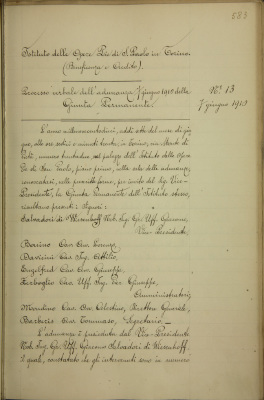 583
Istituto delle Opere Pie di S. Paolo in Torino.
(Beneficenza e Credito).
Processo verbale dell'adunanza 7 giugno 1910 della
Giunta Permanente.
No. 13
7 giugno 1910
L'anno millenovecentodieci, addì sette del mese di giu-
gno, alle ore sedici e minuti trenta, in Torino, via Monte di
Pietà, numero trentadue, nel palazzo dell'Istituto delle Opere
Pie di San Paolo, piano primo, nella sala delle adunanze,
convocatasi, nelle prescritte forme, per invito del Sig. Vice-
Presidente, la Giunta Permanente dell'Istituto stesso,
risultano presenti i Signori:
Salvadori di Wiesenhoff Nob. Ing. Gr. Uff. Giacomo,
Vice-Presidente,
Borino Cav. Avv. Lorenzo,
Davicini Cav. Ing. Attilio,
Engelfred Cav. Avv. Giuseppe,
Ferboglio Cav. Uff. Ing. Giuseppe,
Amministratori,
Mandino Cav. Avv. Celestino, Direttore Generale,
Barberis Cav. Tommaso, Segretario.
L'adunanza è presieduta dal Vice-Presidente
Nob. Ing. Gr. Uff. Giacomo Salvadori di Wiesenhoff,
il quale, constatato che gli intervenuti sono in numero